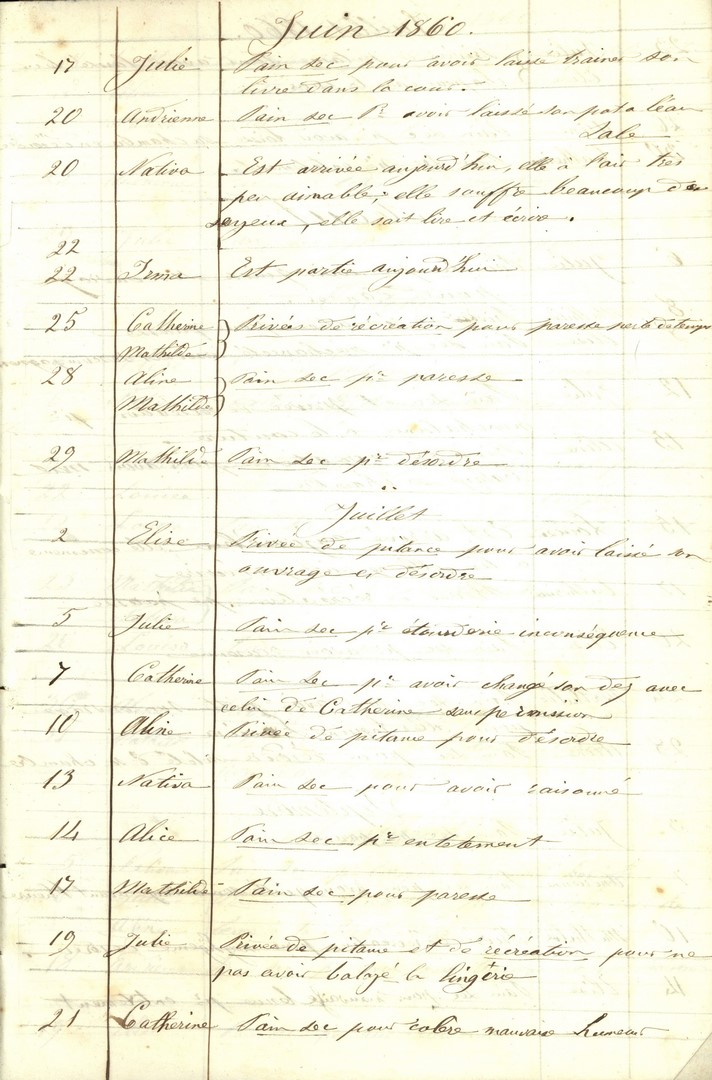 Juin 1860.
17 Julie Pain sec pour avoir laissé trainer son
livre dans la cour.
20 Andrienne Pain sec pr avoir laissé son pot à l'eau
Sale
20 Nativa Est arrivée aujourd'hui, elle à l'air très
peu aimable, elle souffre beaucoup des
yeux, elle sait lire et écrire.
22
22 Irma Est partie aujourd'hui
25 Catherine Privées de récréation pour paresse perte de temps
Mathilde
28 Aline Pain sec pr paresse
Mathilde
29 Mathilde Pain sec pr désordre
Juillet
2 Elise Privée de pitance pour avoir laissé son
ouvrage en désordre
5 Julie Pain sec pr étourderie inconséquence
7 Catherine Pain sec pr avoir changé son dez avec
celui de Catherine sans permission
10 Aline Privée de pitance pour désordre
13 Nativa Pain sec pour avoir raisonné
14 Alice Pain sec pr entetement
17 Mathilde Pain sec pour paresse
19 Julie Privée de pitance et de récréation pour ne
pas avoir balayé la lingerie
21 Catherine Pain sec pour colère mauvaise humeur